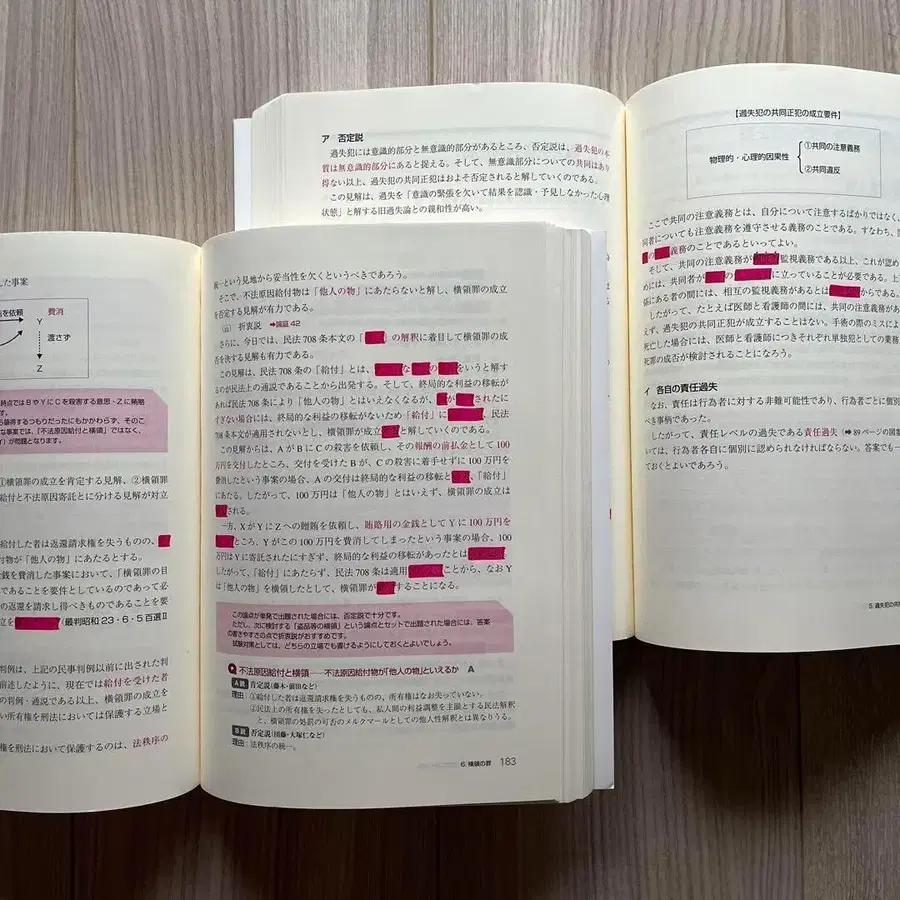 ア 否定説
過失犯には意識的部分と無意識的部分があるところ、否定説は、過失犯の本
質は無意識的部分にあると捉える。そして、無意識部分についての共同はあり
得ない以上、過失犯の共同正犯はおよそ否定されると解していくのである。
この見解は、過失を「意識の緊張を欠いて結果を認識・予見しなかった心理
状態」と解する旧過失論との親和性が高い。
【過失犯の共同正犯の成立要件】
物理的・心理的因果性
①共同の注意義務
②共同違反
ここで共同の注意義務とは、自分について注意するばかりではなく、
同者についても注意義務を遵守させる義務のことである。すなわち、
の 義務のことであるといってよい。
そして、共同の注意義務が 監視義務である以上、これが認め
めには、共同者が の に立っていることが必要である。
係にある者の間には、相互の監視義務があるとは からである。
したがって、たとえば医師と看護師の間には、共同の注意義務
えず、過失犯の共同正犯が成立することはない。手術の際のミスによ
死亡した場合には、医師と看護師につきそれぞれ単独犯としての業務
死罪の成否が検討されることになろう。
イ 各自の責任過失
なお、責任は行為者に対する非難可能性であり、行為者ごとに個別
べき事柄であった。
したがって、責任レベルの過失である責任過失(➡89ページの図
いては、行為者各自に個別に認められなければならない。答案でも
ておくとよいであろう。
5. 過失犯の共同
した事案
を依頼
費消
Y
渡さず
Z
時点ではBやYにCを殺害する意思・Zに賄賂
す。
ら領得するつもりだったにもかかわらず、そのこ
な事案では、「不法原因給付と横領」ではなく、
)が問題となります。
①横領罪の成立を肯定する見解、②横領罪
給付と不法原因寄託とに分ける見解が対立
給付した者は返還請求権を失うものの、
付物が「他人の物」にあたるとする。
金銭を費消した事案において、「横領罪の目
ることを要件としているのであって必
の返還を請求し得べきものであることを要
立を (最判昭和23・6・5百選Ⅱ
判例は、上記の民事判例以前に出された判
前述したように、現在では給付を受けた者
の判例・通説である以上、横領罪の成立を
い所有権を刑法においては保護する立場と
権を刑法において保護するのは、法秩序の
統一という見地から妥当性を欠くというべきであろう。
そこで、不法原因給付物は「他人の物」にあたらないと解し、横領罪の成立
を否定する見解が有力である。
折衷説 ➡論証42
さらに、今日では、民法708条本文の「 」の解釈に着目して横領罪の成
否を決する見解も有力である。
この見解は、民法708条の「給付」とは、 な の をいうと解す
るのが民法上の通説であることから出発する。そして、終局的な利益の移転が
あれば民法708条により「他人の物」とはいえなくなるが、 が されたに
すぎない場合には、終局的な利益の移転がないため「給付」に 、民法
708条本文が適用されないとし、横領罪が成立 と解していくのである。
この見解からは、AがBにCの殺害を依頼し、その報酬の前払金として100
万円を交付したところ、交付を受けたBが、Cの殺害に着手せずに100万円を
費消したという事案の場合、Aの交付は終局的な利益の移転と 、「給付」
にあたる。したがって、100万円は「他人の物」とはいえず、横領罪の成立は
される。
一方、XがYにZへの贈賄を依頼し、賄賂用の金銭としてYに100万円を
ところ、Yがこの100万円を費消してしまったという事案の場合、100
万円はYに寄託されたにすぎず、終局的な利益の移転があったとは
したがって、「給付」にあたらず、民法708条は適用 ことから、なおY
は「他人の物」を横領したとして、横領罪が するこになる。
この論点が単発で出題された場合には、否定説で十分です。
ただし、次に検討する「盗品等の横領」という論点とセットで出題された場合には、答案
の書きやすさの点で折衷説がおすすめです。
試験対策としては、どちらの立場でも書けるようにしておくとよいでしょう。
Q 不法原因給付と横領——不法原因給付物が「他人の物」といえるか A
A説 肯定説(藤木・前田など)
理由：①給付した者は返還請求権を失うものの、所有権はなお失っていない。
②民法上の所有権を失ったとしても、私人間の利益調整を主眼とする民法解釈
と、横領罪の処罰の可否のメルクマールとしての他人性解釈とは異なりうる。
B説 否定説(団藤・大塚仁など)
理由：法秩序の統一。
6. 横領の罪 183